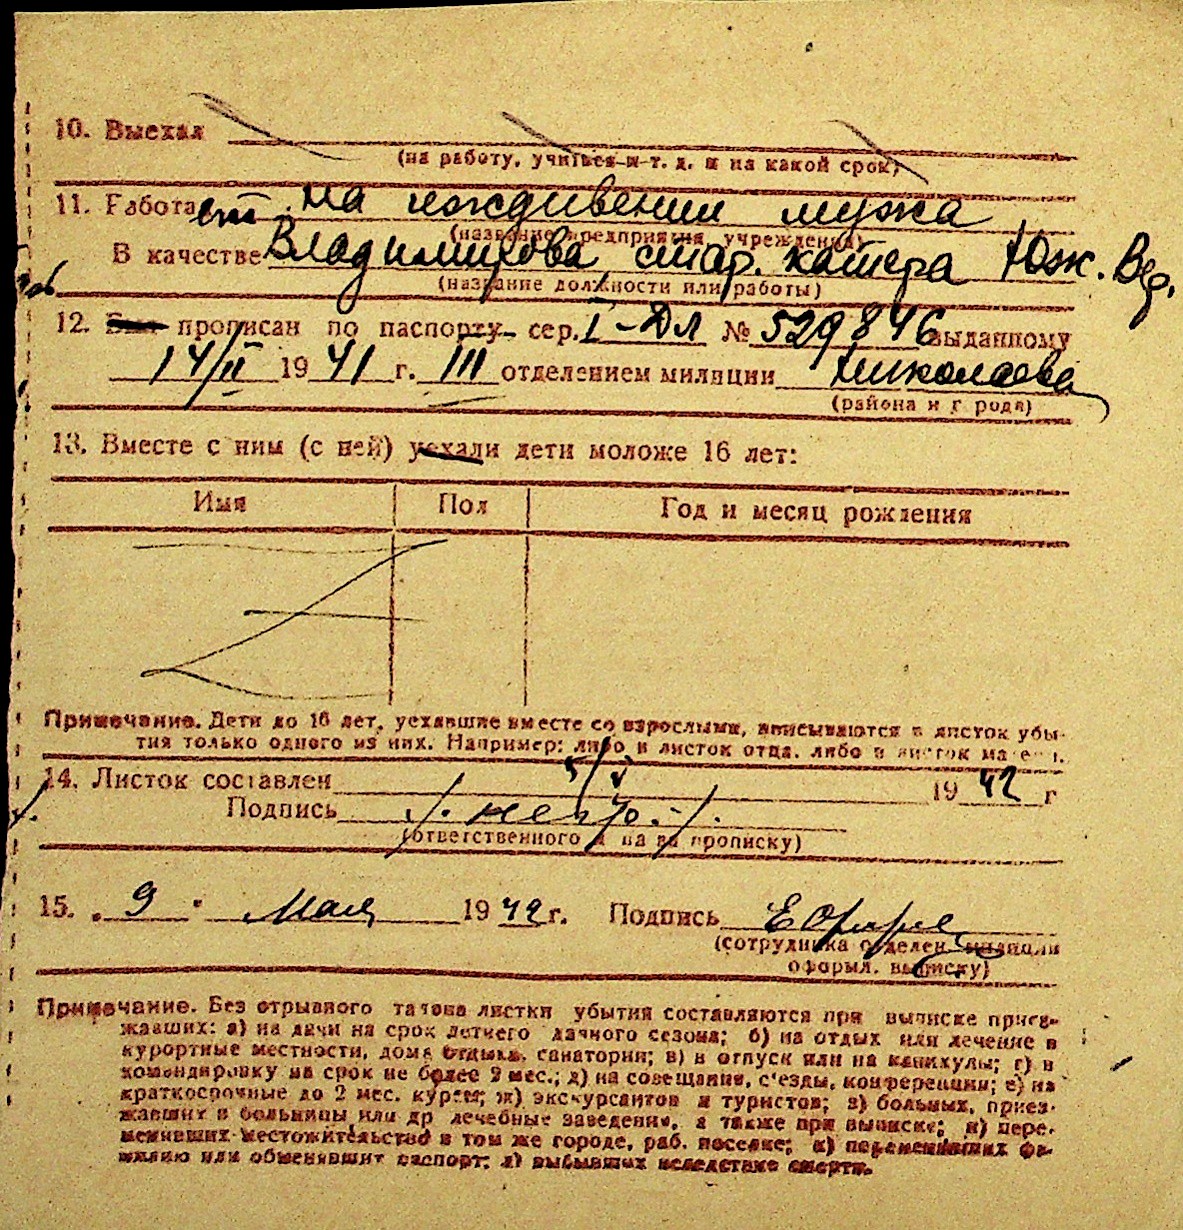 10. Выехал
(на работу, учиться и т. д. и на какой срок)
11. Работает на иждивении мужа
(название предприятия, учреждения)
В качестве Владимирова, стар. катера Юж. Вер.
(название должности или работы)
12. Был прописан по паспорту сер. I-ДЛ № 529846 выданному
14/II 1941 г. III отделением милиции Николаева
(района и г рода)
13. Вместе с ним (с ней) уехали дети моложе 16 лет:
Имя Пол Год и месяц рождения
Примечание. Дети до 16 лет, уехавшие вместе со взрослыми, вписываются в листок убы-
тия только одного из них. Например: либо в листок отца, либо в листок матери.
14. Листок составлен 5/V 1942 г
Подпись
(ответственного за прописку)
15. „9" Мая 1942 г. Подпись
(сотрудника отделен. милиции
оформл. выписку)
Примечание. Без отрывного талона листки убытия составляются при выписке приез-
жавших: а) на дачи на срок летнего дачного сезона; б) на отдых или лечение в
курортные местности, дома отдыха, санатории; в) в отпуск или на каникулы; г) в
командировку на срок не более 2 мес.; д) на совещания, с'езды, конференции; е) на
краткосрочные до 2 мес. курсы; ж) экскурсантов и туристов; з) больных, приез-
жавших в больницы или др лечебные заведения, а также при выписке; и) пере-
менивших местожительство в том же городе, раб. поселке; к) переменивших фа-
милию или обменявших паспорт; л) выбывших вследствие смерти.